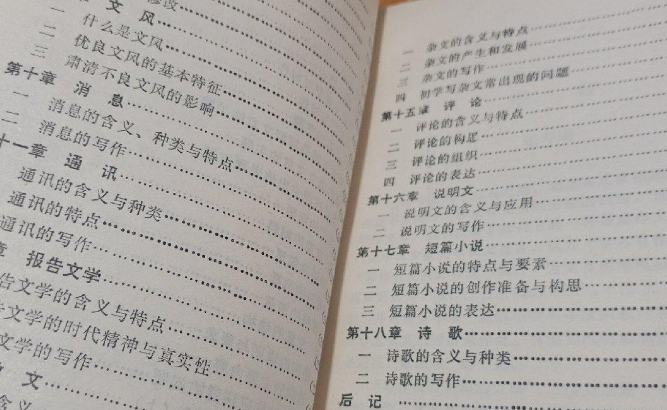 修改
文 风
一 什么是文风
二 优良文风的基本特征
三 肃清不良文风的影响
第十章 消 息
一 消息的含义、种类与特点
二 消息的写作
十一章 通 讯
通讯的含义与种类
通讯的特点
通讯的写作
章 报告文学
告文学的含义与特点
文学的时代精神与真实性
文学的写作
文
含义
一 杂文的含义与特点
二 杂文的产生和发展
三 杂文的写作
四 初学写杂文常出现的问题
第十五章 评 论
一 评论的含义与特点
二 评论的构思
三 评论的组织
四 评论的表达
第十六章 说明文
一 说明文的含义与应用
二 说明文的写作
第十七章 短篇小说
一 短篇小说的特点与要素
二 短篇小说的创作准备与构思
三 短篇小说的表达
第十八章 诗 歌
一 诗歌的含义与种类
二 诗歌的写作
后 记